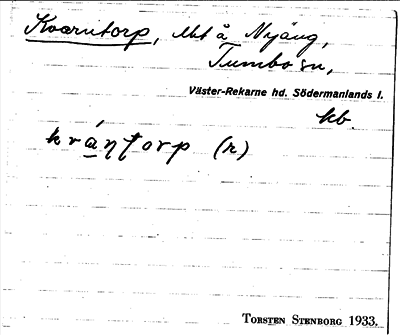 Kvarntorp, lht å Nyäng,
Tumbo sn,
Väster-Rekarne hd. Södermanlands l.
kb.
kvá̱ηt̩orp (n)
TORSTEN STENBORG 1933.